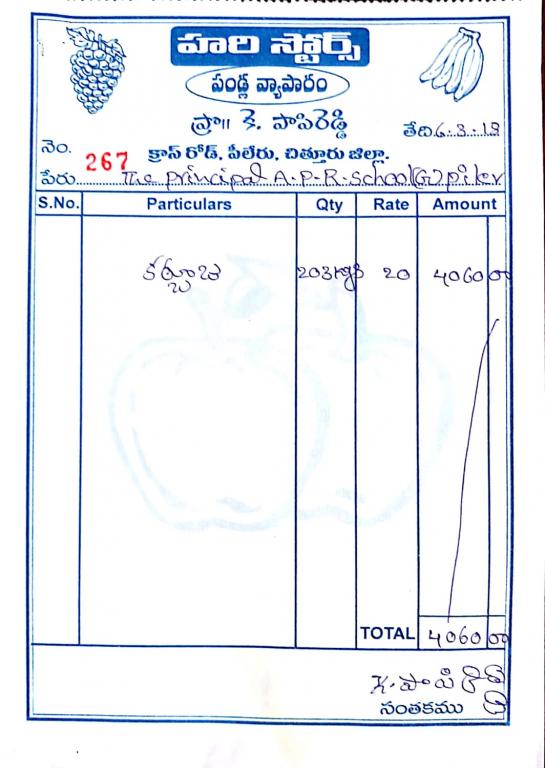 హరి స్టోర్స్
పండ్ల వ్యాపారం
ప్రొ॥ కె. పాపిరెడ్డి
తేది 6-3-18
నెం. 267 క్రాస్ రోడ్, పీలేరు, చిత్తూరు జిల్లా.
పేరు The principal A.P.R. school (G) piler
S.No. Particulars Qty Rate Amount
కర్బూజ 203 కేజి 20 4060 00
TOTAL 4060 00
K. పాపిరెడ్డి
సంతకము